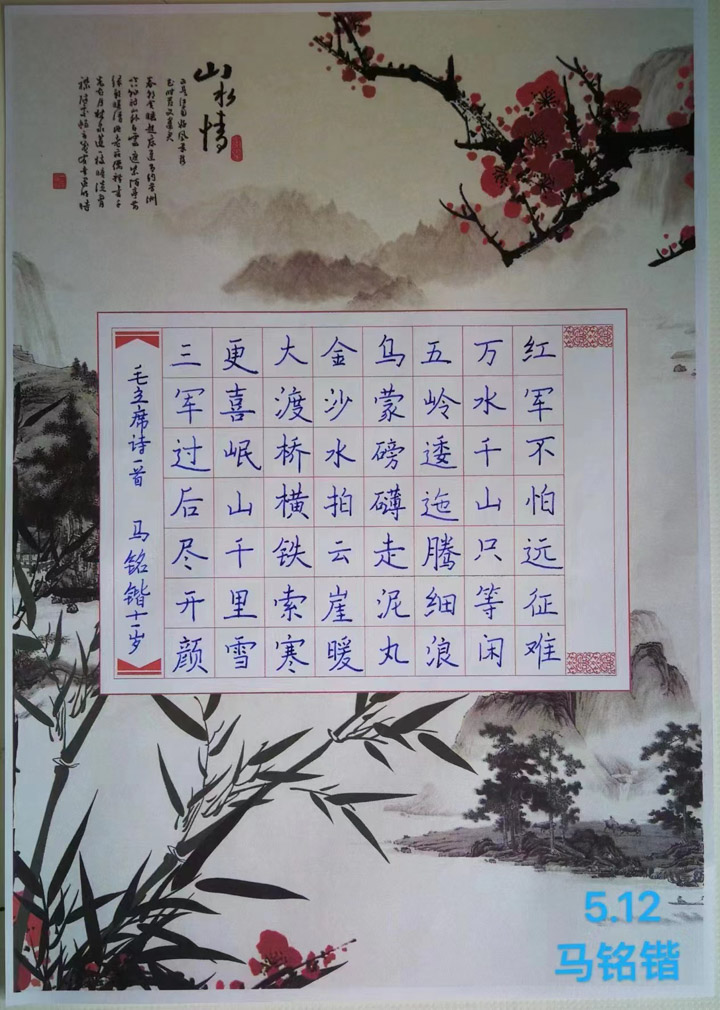 山水情
红军不怕远征难
万水千山只等闲
五岭逶迤腾细浪
乌蒙磅礴走泥丸
金沙水拍云崖暖
大渡桥横铁索寒
更喜岷山千里雪
三军过后尽开颜
毛主席诗一首 马铭锴十一岁
5.12
马铭锴